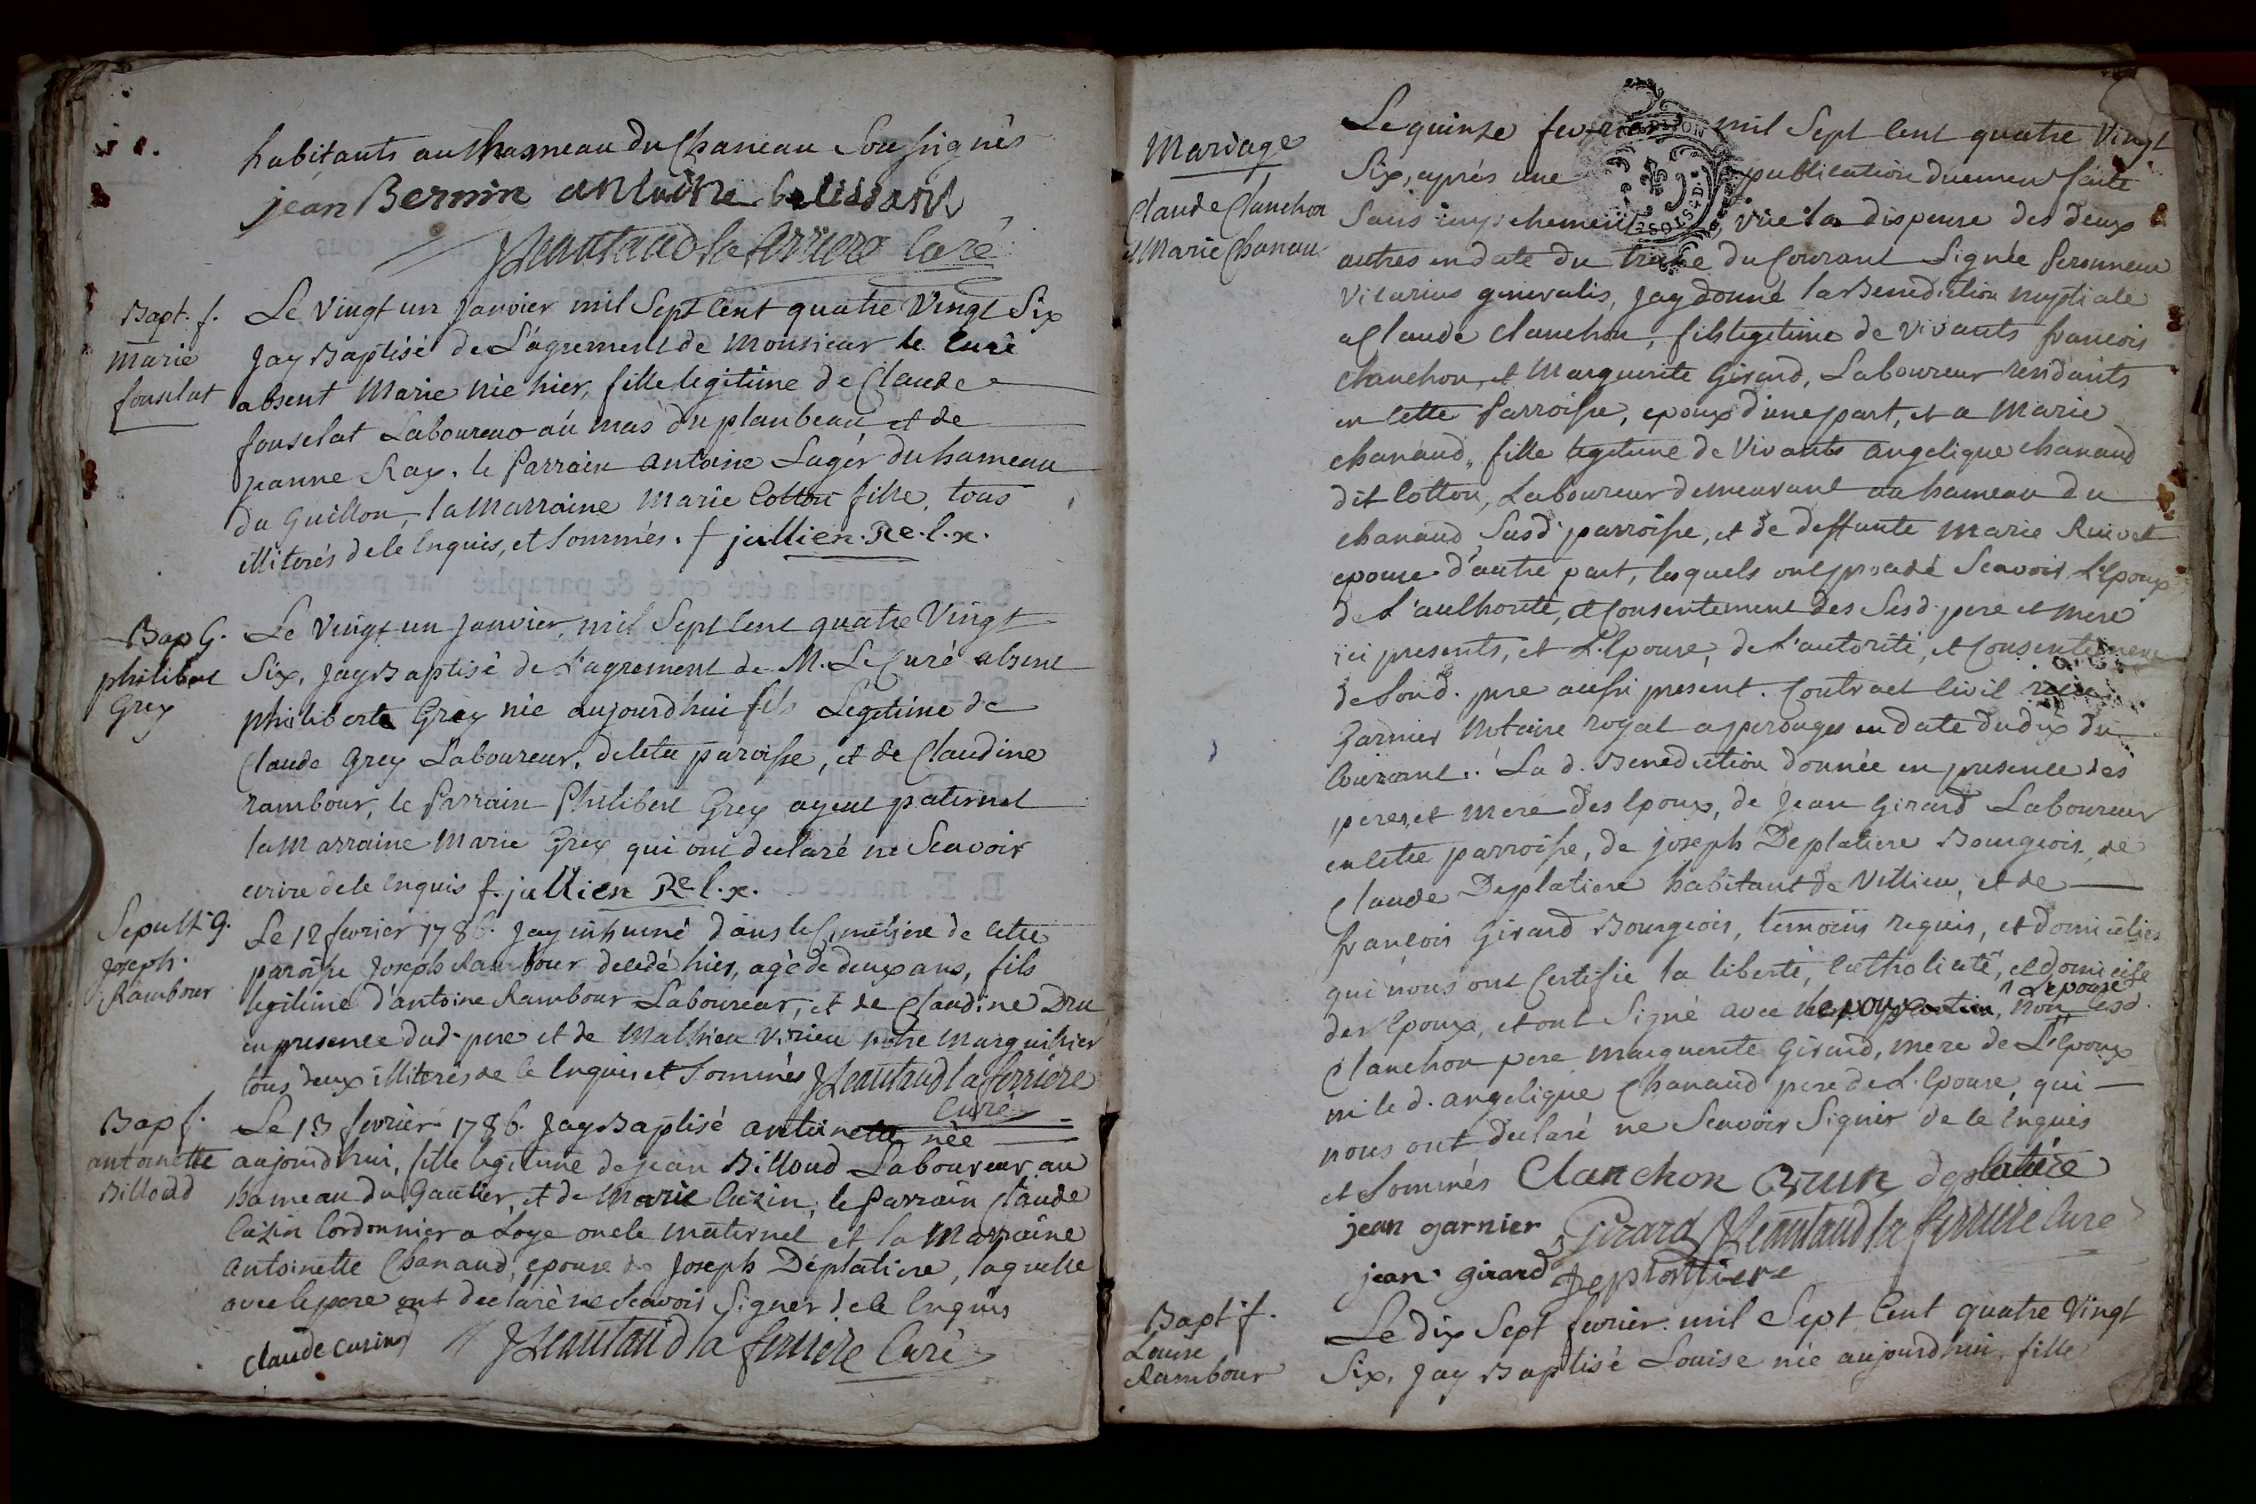 habitants au hameau du Chaneau Soussignés
jean Bernin antoine
heautaud la ferriere Curé
Bapt. f.
marie
fonselat
Le Vingt un Janvier mil Sept Cent quatre Vingt Six
Jay Baptisé de L'agrement de Monsieur le Curé
absent Marie née hier, fille legitime de Claude
fonselat Laboureur au mas du planbeau et de
jeanne Ray. le Parrain antoine Lager du hameau
du Guillon, la Marraine Marie Cotton fille, tous
illiterés de ce Enquis, et Sommés. f jullien. Re. l. x.
Bap G.
philibert
Grey
Le Vingt un Janvier, mil Sept Cent quatre Vingt
Six, Jay Baptisé de L'agrement de M. Le Curé absent
philiberte Grey née aujourdhui fils Legitime de
Claude Grey Laboureur, de cette paroisse, et de Claudine
rambour, le Parrain Philibert Grey ayeul paternel
la Marraine Marie Grey qui ont declaré ne Scavoir
ecrire de ce Enquis f. jullien Re. l. x.
Sepult. g.
Joseph
Rambour
Le 12 fevrier 1786. Jay inhumé dans le Cimetiere de cette
paroisse Joseph Rambour decedé hier, agé de deux ans, fils
legitime d'antoine Rambour Laboureur, et de Claudine Dru
en presence dud. pere et de Mathieu Virieu notre Marguillier
tous deux illiterés de ce Enquis et Sommés heautaud la ferriere
Curé
Bap f.
antoinette
Billoud
Le 13 fevrier 1786. Jay Baptisé antoinette née
aujourdhui, fille legitime de jean Billoud Laboureur au
hameau du Gautier, et de Marie Cuzin, le Parrain Claude
Cuzin Cordonnier a Loye oncle maternel et la Marraine
Antoinette Chanaud, epouse de Joseph Déplatiere, laquelle
avec le pere ont declaré ne Scavoir Signer de ce Enquis
Claude cusin heautaud la ferriere Curé
Mariage
Claude Clanchon
et Marie Chanau
Le quinze fevrier mil Sept Cent quatre Vingt
Six, aprés une publication duement faite
Sans empechement, Vüe la dispense des deux
autres en date du treize du Courant Signée Peronneau
Vicarius generalis, Jay donné la Benediction nuptiale
a Claude Clanchon, fils legitime de Vivants francois
Clanchon, et Marguerite Girard, Laboureur residants
en cette Parroisse, epoux d'une part, et a Marie
chanaud, fille legitime de Vivants Angelique chanaud
dit Cotton, Laboureur demeurant au hameau du
chanaud Susd. parroisse, et de deffunte Marie Ruivet
epouse d'autre part, lesquels ont procedé Scavoir L'Epoux
de L'authorité, et Consentement des Susd. pere et mere
ici presents, et L'Epouse, de L'autorité, et Consentement
de Sond. pere aussi present. Contract Civil reçu
Garnier Notaire royal a perouges en date du dix du
Courant. La d. Benediction donnée en presence des
peres, et mere des Epoux, de Jean Girard Laboureur
en cette parroisse, de joseph Deplatiere Bourgeois, de
Claude Deplatiere habitant de Villieu, et de
françois Girard Bourgeois, temoins requis, et domicilies
qui nous ont Certifié la liberté, Catholicité, et domicile
des Epoux, et ont Signé avec L'epoux, L'epouse non lesd.
Clanchon pere marguerite Girard, mere de L'Epoux
ni le d. angelique Chanaud pere de L'Epouse, qui
nous ont declaré ne Scavoir Signer de ce Enquis
et Sommés Clanchon Brun deplatiere
jean garnier Girard heautaud la ferriere Curé
jean girard deplattiere
Bapt f.
Louise
Rambour
Le dix Sept fevrier mil Sept Cent quatre Vingt
Six, Jay Baptisé Louise née aujourdhui, fille